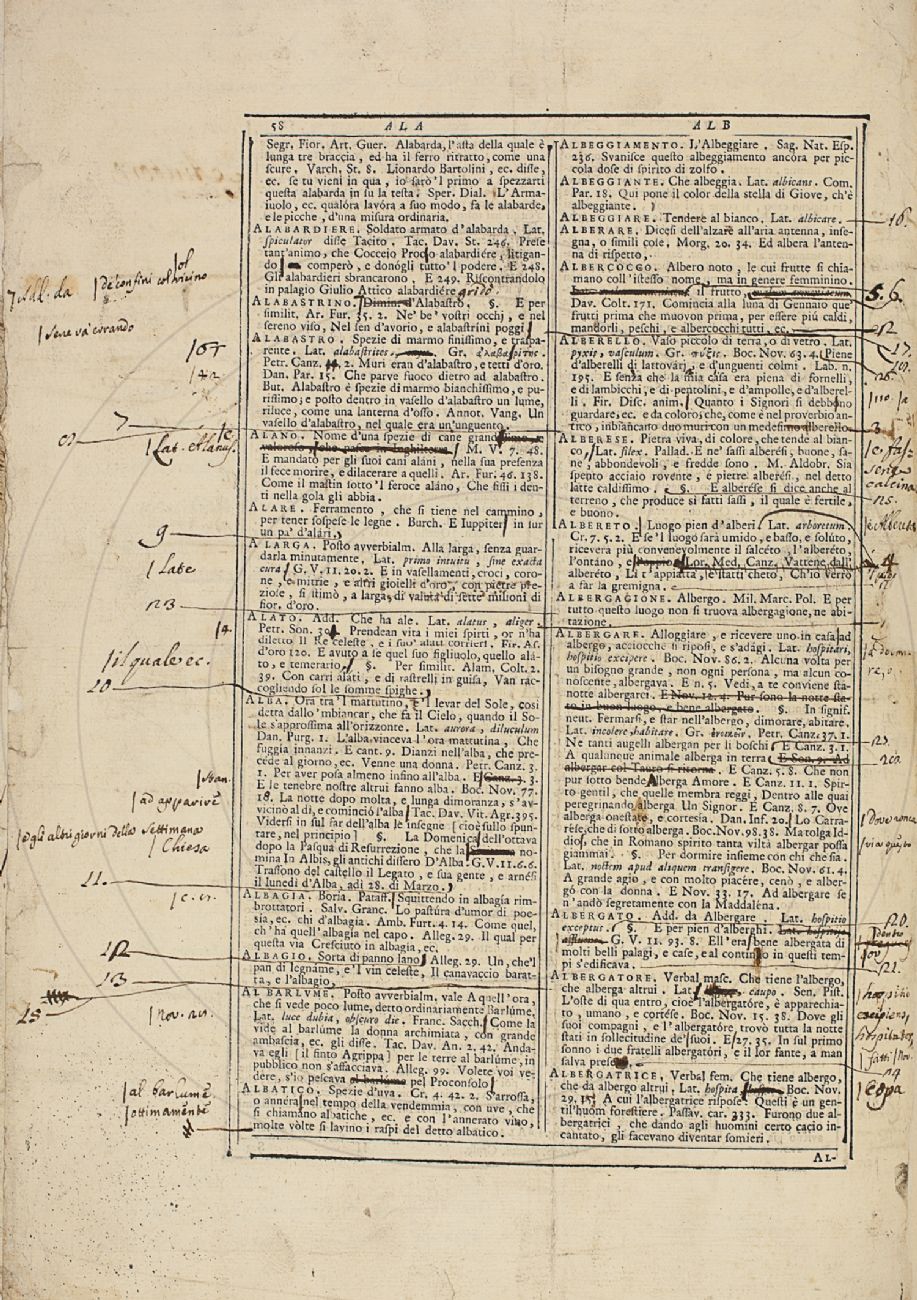 58 ALA ALB
Segr. Fior. Art. Guer. Alabarda, l'asta della quale è
lunga tre braccia, ed ha il ferro ritratto, come una
scure. Varch. St. 8. Lionardo Bartolini, ec. disse,
ec. se tu vieni in qua, io sarò 'l primo a spezzarti
questa alabarda in su la testa. Sper. Dial. L'Arma-
juolo, ec. qualóra lavóra a suo modo, fa le alabarde,
e le picche, d'una misura ordinaria.
ALABARDIERE. Soldato armato d'alabarda, Lat.
spiculator disse Tacito. Tac. Dav. St. 246. Prese
tant'animo, che Coccejo Proclo alabardiére, litigan-
do comperò, e donógli tutto 'l podere. E 248.
Gli alabardieri sbrancarono. E 249. Riscontrándolo
in palagio Giulio Attico alabardiére gridò
ALABASTRINO. Diminu. d'Alabastro. §. E per
similit. Ar. Fur. 35. 2. Ne' be' vostri occhj, e nel
sereno viso, Nel sen d'avorio, e alabastríni poggi
ALABASTRO. Spezie di marmo finissimo, e traspa-
rente. Lat. alabastrites. Gr. ἀλαβαςρίτης.
Petr. Canz. 2. Muri eran d'alabastro, e tetti d'oro.
Dan. Par. 15. Che parve fuoco dietro ad alabastro.
But. Alabastro è spezie di marmo bianchissimo, e pu-
rissimo; e posto dentro in vasello d'alabastro un lume,
riluce, come una lanterna d'osso. Annot. Vang. Un
vasello d'alabastro, nel quale era un'unguento.
ALANO. Nome d'una spezie di cane grand
M. V. 7. 48.
E mandato per gli suoi cani aláni, nella sua presenza
il fece morire, e dilacerare a quelli. Ar. Fur. 46. 138.
Come il mastin sotto 'l feroce aláno, Che fissi i den-
ti nella gola gli abbia.
ALARE. Ferramento, che si tiene nel cammino,
per tener sospese le legne. Burch. E Iuppiter in sur
un pa' d'alári,
A LARGA. Posto avverbialm. Alla larga, senza guar-
darla minutamente, Lat. primo intuitu, sine exacta
cura G. V. 11. 20. 2. E in vasellamenti, croci, coro-
ne, e mitrie, e altri gioielli d'oro, con pietre pre-
ziose, si stimò, a larga, di valuta di sette milioni di
fior. d'oro.
ALATO. Add. Che ha ale. Lat. alatus, aliger
Petr. Son. 30 Prendean vita i miei spirti, or n'ha
diletto Il Re celeste, e i suo' alati corrieri. Fir. As.
d'oro 120. E avuto a se quel suo figliuolo, quello alá-
to, e temerario §. Per similit. Alam. Colt. 2.
39. Con carri aláti, e di rastrelli in guisa, Van rac-
cogliendo sol le somme spighe.
ALBA. Ora tra 'l mattutino, e 'l levar del Sole, così
detta dallo 'mbiancar, che fa il Cielo, quando il So-
le s'approssima all'orizzonte. Lat. aurora, diluculum
Dan. Purg. 1. L'alba vinceva l'ora mattutina, Che
fuggia innanzi. E cant. 9. Dianzi nell'alba, che pre-
cede al giorno, ec. Venne una donna. Petr. Canz. 3.
1. Per aver posa almeno infino all'alba. E Canz. 3. 3.
E le tenebre nostre altrui fanno alba. Boc. Nov. 77.
18. La notte dopo molta, e lunga dimoranza, s'av-
vicinò al dì, e cominciò l'alba Tac. Dav. Vit. Agr. 395.
Vidersi in sul far dell'alba le insegne [cioè sullo spun-
tare, nel principio] §. La Domenica dell'ottava
dopo la Pasqua di Resurrezione, che la no-
mina In Albis, gli antichi dissero D'Alba. G. V. 11. 6. 6.
Trassono del castello il Legato, e sua gente, e arnési
il lunedì d'Alba, adi 28. di Marzo.
ALBAGIA. Boria. Pataff. Squittendo in albagía rim-
brottatori. Salv. Granc. Lo pastúra d'umor di poe-
sia, ec. chi d'albagía. Amb. Furt. 4. 14. Come quel,
ch'ha quell'albagía nel capo. Alleg. 29. Il qual per
questa via Cresciuto in albagía, ec.
ALBAGIO. Sorta di panno lano Alleg. 29. Un, che'l
pan di legname, e 'l vin celeste, Il canavaccio barat-
ta, e l'albagio,
AL BARLUME. Posto avverbialm. vale A quell'ora,
che si vede poco lume, detto ordinariamente Barlúme,
Lat. luce dubia, obscuro die. Franc. Sacch. Come la
vide al barlúme la donna archimiata, con grande
ambascia, ec. gli disse. Tac. Dav. An. 2. 42. Anda-
va egli [il finto Agrippa] per le terre al barlúme, in
pubblico non s'affacciava. Alleg. 99. Volete voi ve-
dere, s'io pescava al barlúme pel Proconsolo
ALBATICO. Spezie d'uva. Cr. 4. 42. 2. S'arrossa,
o annera nel tempo della vendemmia, con uve, che
si chiamano albátiche, ec. e con l'annerato vino,
molte volte si lavino i raspi del detto albatico.
ALBEGGIAMENTO. L'Albeggiare. Sag. Nat. Esp.
236. Svanisce questo albeggiamento ancóra per pic-
cola dose di spirito di zolfo.
ALBEGGIANTE. Che albeggia. Lat. albicans. Com.
Par. 18. Qui pone il color della stella di Giove, ch'è
albeggiante.
ALBEGGIARE. Tendere al bianco, Lat. albicare.
ALBERARE. Dicesi dell'alzare all'aria antenna, inse-
gna, o simili cose, Morg. 20. 34. Ed albera l'anten-
na di rispetto,
ALBERCOCCO. Albero noto, le cui frutte si chia-
mano coll'istesso nome, ma in genere femminino.
Il frutto
Dav. Colt. 171. Comincia alla luna di Gennaio que'
frutti prima che muovon prima, per éssere piú caldi,
mandorli, peschi, e albercocchi tutti, ec.
ALBERELLO. Vaso piccolo di terra, o di vetro. Lat.
pyxis, vasculum. Gr. πύξις. Boc. Nov. 63. 4. Piene
d'alberelli di lattovári, e d'unguenti colmi. Lab. n.
195. E senza che la mia casa era piena di fornelli,
e di lambicchi, e di pentolini, e d'ampolle, e d'alberel-
li. Fir. Disc. anim. Quanto i Signori si debbono
guardare, ec. e da coloro, che, come è nel proverbio an-
tico, inbiáncano duo muri con un medésimo alberello.
ALBERESE. Pietra viva, di colore, che tende al bian-
co, Lat. silex. Pallad. E ne' sassi alberési, buone, sa-
ne, abbondevoli, e fredde sono. M. Aldobr. Sia
spento acciaio rovente, e pietre alberési, nel detto
latte caldissimo. §. E alberése si dice anche al
terreno, che produce si fatti sassi, il quale è fertile,
e buono.
ALBERETO. Luogo pien d'alberi. Lat. arboretum.
Cr. 7. 5. 2. E se 'l luogo sarà umido, e basso, e solúto,
riceverà piú convenevolmente il salcéto, l'alberéto,
l'ontáno, e Pioppio Lor. Med. Canz. Vattene dall'
alberéto, Lì t'appiatta, e statti cheto, Ch'io verrò
a far la gremigna.
ALBERGAGIONE. Albergo. Mil. Marc. Pol. E per
tutto questo luogo non si truova albergagione, ne abi-
tazione.
ALBERGARE. Alloggiare, e ricevere uno in casa ad
albergo, acciocche si riposi, e s'adági. Lat. hospitari,
hospitio excipere. Boc. Nov. 86. 2. Alcúna volta per
un bisogno grande, non ogni persona, ma alcun co-
noscente, albergava. E n. 5. Vedi, a te conviene sta-
notte albergarci. E Nov. 12. 4. Pur sono la notte sta-
to in buon luogo, e bene albergato. §. In signif.
neut. Fermarsi, e star nell'albergo, dimorare, abitare.
Lat. incolere, habitare. Gr. ἐνοικεῖν. Petr. Canz. 37. 1.
Ne tanti augelli albergan per li boschi E Canz. 3. 1.
A qualunque animale alberga in terra E Son. 9. Ad
albergar col Tauro si ritorna. E Canz. 5. 8. Che non
pur sotto bende Alberga Amore. E Canz. 11. 1. Spir-
to gentil, che quelle membra reggi, Dentro alle quai
peregrinando alberga Un Signor. E Canz. 8. 7. Ove
alberga onestate, e cortesia. Dan. Inf. 20. Lo Carra-
rése, che di sotto alberga. Boc. Nov. 98. 38. Ma tolga Id-
dio, che in Romano spirito tanta viltà albergar possa
giammai. §. Per dormire insieme con chi che sia.
Lat. noctem apud aliquem transigere. Boc. Nov. 61. 4.
A grande agio, e con molto piacére, cenò, e alber-
gó con la donna. E Nov. 33. 17. Ad albergare se
n'andò segretamente con la Maddaléna.
ALBERGATO. Add. da Albergare. Lat. hospitio
exceptus. §. E per pien d'alberghi. Lat. hospitiis
G. V. 11. 93. 8. Ell'era bene albergata di
molti belli palagi, e case, e al continuo in questi tem-
pi s'edificava.
ALBERGATORE. Verbal masc. Che tiene l'albergo,
che alberga altrui. Lat. caupo. Sen. Pist.
L'oste di qua entro, cioè l'albergatóre, è apparecchia-
to, umano, e cortése. Boc. Nov. 15. 38. Dove gli
suoi compagni, e l'albergatóre, trovò tutta la notte
stati in sollecitudine de' suoi. E 27. 35. In sul primo
sonno i due fratelli albergatóri, e il lor fante, a man
salva presi.
ALBERGATRICE. Verbal fem. Che tiene albergo,
che da albergo altrui, Lat. hospita Boc. Nov.
29. 15. A cui l'albergatrice rispose. Questi è un gen-
til'huom forestiere. Passav. car. 333. Furono due al-
bergatrici, che dando agli huomini certo cacio in-
cantato, gli facevano diventar somieri.
AL-
de' confini col vicino
sene va errando
or
42
7
Lat. Alanus
9
Late
23
4
il quale ec.
10
ad apparire
degli altri giorni della Settimana
Chiesa
11.
12
13
15
Nov. 21.
al barlume
ottimamente
16.
5. 6.
12
17.
3.
senza
calcina
25.
4
1
23.
20.
Dove non è
20.
dentro
21.
hospitio
excipiens,
hospitator,
fatti
14
copa